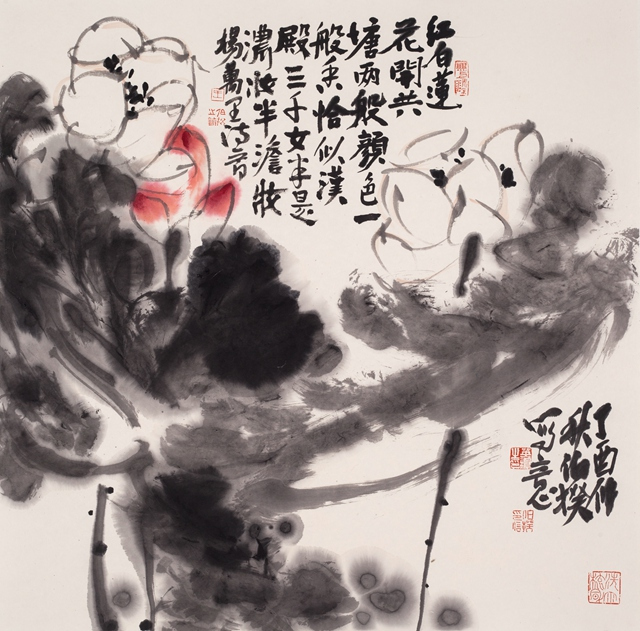 紅白蓮
花開共
塘兩般顏色一
般香恰似漢
殿三千女半是
濃妝半澹妝
楊萬里詩
丁酉仲
秋伯揆